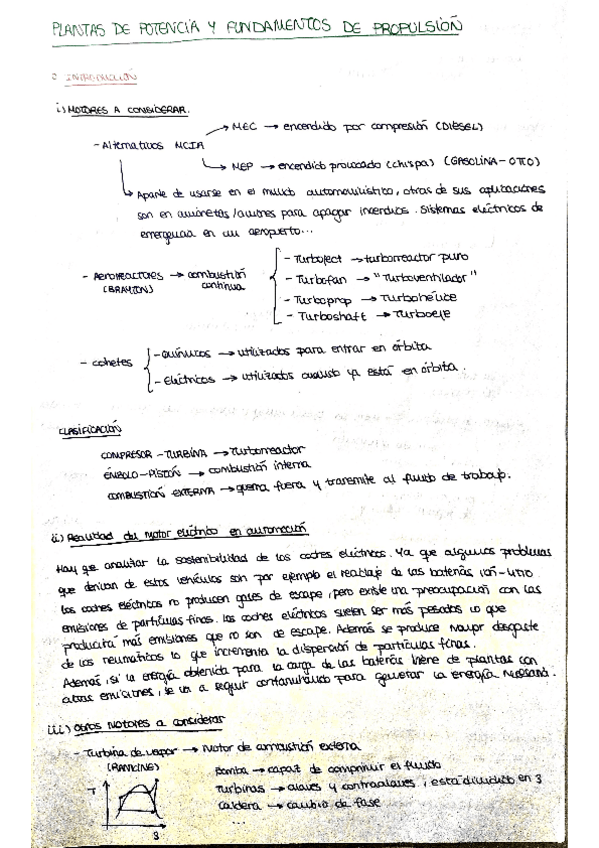 PLANTAS DE POTENCIA Y FUNDAMENTOS DE PROPULSIÓN
0 INTRODUCCIÓN
i) MOTORES A CONSIDERAR.
- Alternativos MCIA
→ MEC → encendido por compresión (DIÉSEL)
→ MEP → encendido provocado (chispa) (GASOLINA - OTTO)
→ Aparte de usarse en el mundo automovilístico, otras de sus aplicaciones
son en avionetas/aviones para apagar incendios. Sistemas eléctricos de
emergencia en un aeropuerto...
- Aerorreactores → combustión continua
(BRAYTON)
- Turbojet → turborreactor puro
- Turbofan → "Turboventilador"
- Turboprop → Turbohélice
- Turboshaft → Turboeje
- cohetes
- químicos → utilizados para entrar en órbita
- Eléctricos → utilizados cuando ya está en órbita.
CLASIFICACIÓN
COMPRESOR - TURBINA → Turborreactor
ÉMBOLO - PISTÓN → combustión interna
COMBUSTIÓN EXTERNA → quema fuera y transmite al fluido de trabajo.
ii) Realidad del motor eléctrico en automoción
Hay que analizar la sostenibilidad de los coches eléctricos. Ya que algunos problemas
que derivan de estos vehículos son por ejemplo el reciclaje de las baterías ión-litio.
Los coches eléctricos no producen gases de escape, pero existe una preocupación con las
emisiones de partículas finas. Los coches eléctricos suelen ser más pesados lo que
producirá más emisiones que no son de escape. Además se produce mayor desgaste
de los neumáticos lo que incrementa la dispersión de partículas finas.
Además, si la energía obtenida para la carga de las baterías viene de plantas con
altas emisiones, se va a seguir contaminando para generar la energía necesaria.
iii) Otros motores a considerar
- Turbina de vapor → Motor de combustión externa
(RANKINE)
Bomba → capaz de comprimir el fluido
Turbinas → álaves y contraálaves, está dividido en 3
Caldera → cambio de fase
...
T
S